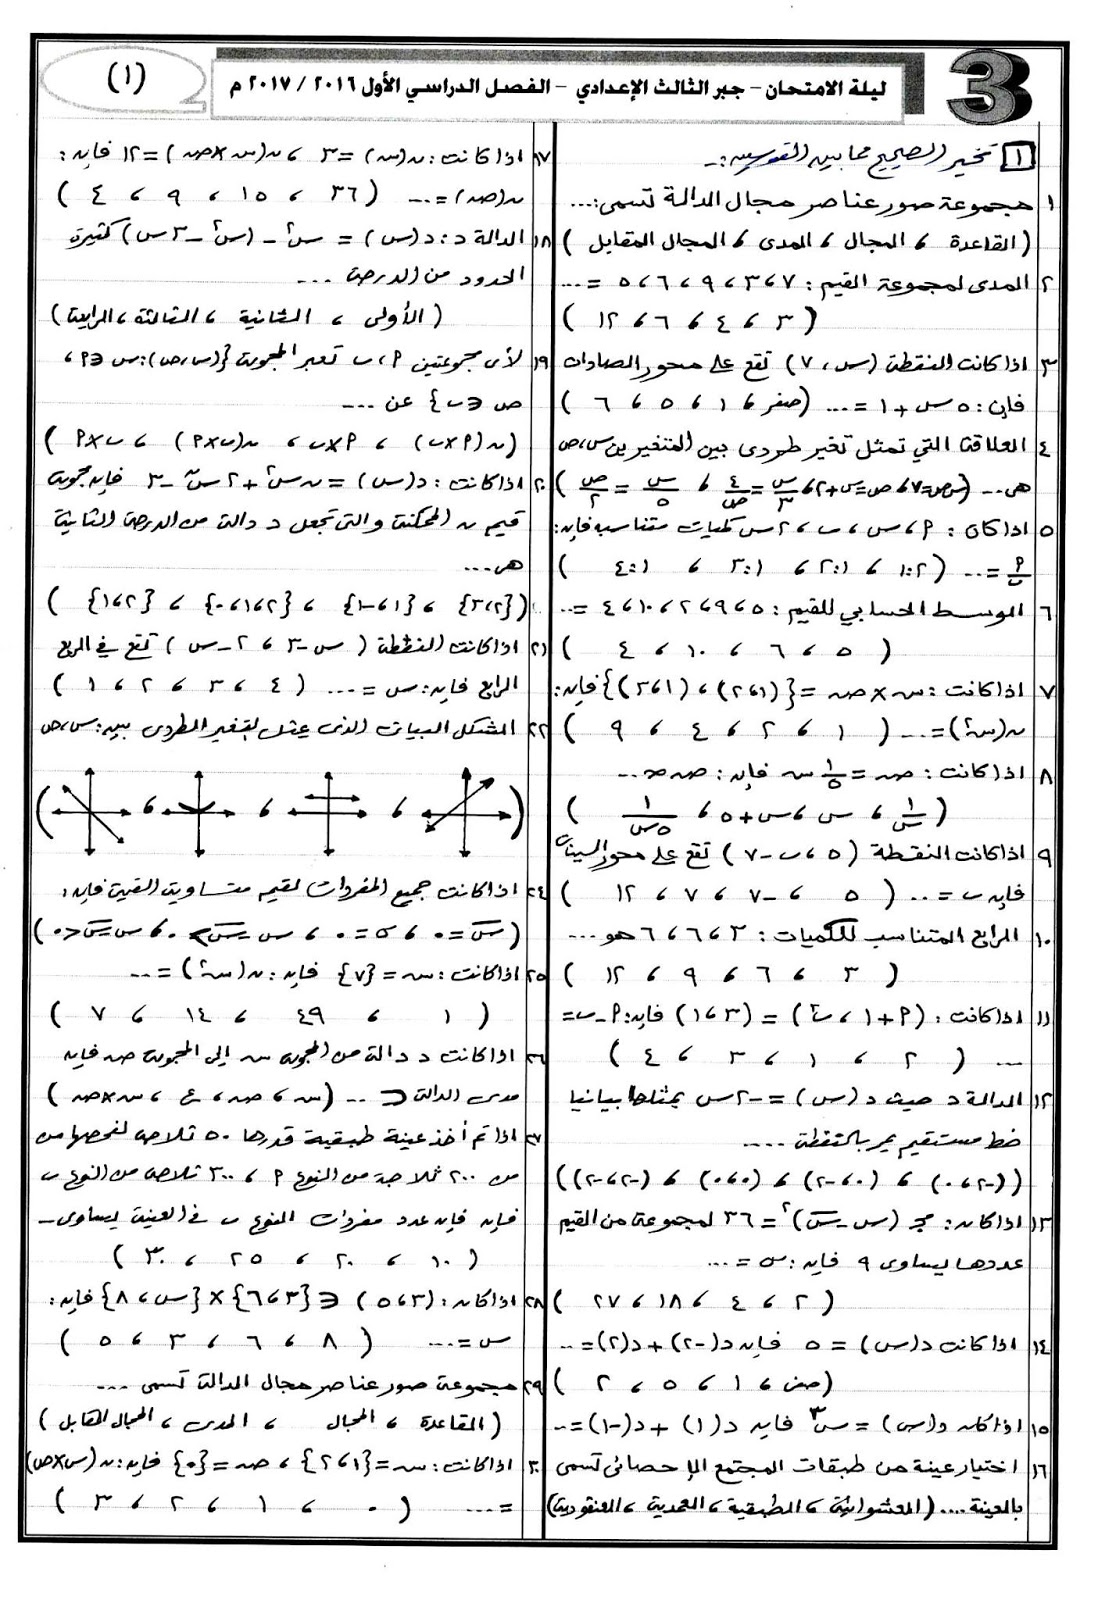 3
ليلة الامتحان - جبر الثالث الإعدادي - الفصل الدراسي الأول ٢٠١٦ / ٢٠١٧ م
(١)
١ تخير الصحيح مما بين القوسين :-
١ مجموعة صور عناصر مجال الدالة تسمى : ...
( القاعدة ، المجال ، المدى ، المجال المقابل )
٢ المدى لمجموعة القيم : ٧ ، ٣ ، ٩ ، ٦ ، ٥ = ...
( ٣ ، ٤ ، ٦ ، ١٢ )
٣ اذا كانت النقطة (س ، ٧) تقع على محور الصادات
فإن : ٥س + ١ = ... (صفر ، ١ ، ٥ ، ٦ )
٤ العلاقة التي تمثل تغير طردى بين المتغيرين س، ص
هى ... (س ص = ٧ ، ص = س + ٢ ، س/٣ = ٤/ص ، س/٥ = ص/٢ )
٥ اذا كان : م ، س ، ب ، ٢س كميات متناسبه فإن :
م/ب = ... ( ١:٢ ، ٢:١ ، ٣:١ ، ٤:١ )
٦ الوسط الحسابي للقيم : ٥ ، ٩ ، ٢ ، ١٠ ، ٤ = ...
( ٥ ، ٦ ، ١٠ ، ٤ )
٧ اذا كانت : س × ص = {(١ ، ٢) ، (١ ، ٣)} فإن :
ن(س٢) = ... ( ١ ، ٢ ، ٤ ، ٩ )
٨ اذا كانت : ص = ١/٥ س فإن : ص ∝ ...
( ١/س ، س ، س + ٥ ، ١/٥س )
٩ اذا كانت النقطة ( ٥ ، ب - ٧ ) تقع على محور السينات
فإن ب = ... ( ٥ ، -٧ ، ٧ ، ١٢ )
١٠ الرابع المتناسب للكميات : ٣ ، ٦ ، ٦ هو ...
( ٣ ، ٦ ، ٩ ، ١٢ )
١١ اذا كانت : (م + ١ ، ب٣) = (٣ ، ١) فإن : م - ب =
... ( ٢ ، ١ ، ٣ ، ٤ )
١٢ الدالة د حيث د (س) = -٢س يمثلها بيانيا
خط مستقيم يمر بالنقطة ....
((-٢ ، ٠) ، (٠ ، -٢) ، (٠ ، ٠) ، (-٢ ، -٢))
١٣ اذا كان : مجـ (س - س̄)٢ = ٣٦ لمجموعة من القيم
عددها يساوى ٩ فإن : σ = ...
( ٢ ، ٤ ، ١٨ ، ٢٧ )
١٤ اذا كانت د(س) = ٥ فإن د(-٢) + د(٢) = ..
(صفر ، ١ ، ٥ ، ٢ )
١٥ اذا كان د(س) = س٣ فإن د(١) + د(-١) = ..
١٦ اختيار عينة من طبقات المجتمع الإحصائى تسمى
بالعينة .... ( العشوائية ، الطبقية ، العمدية ، العنقودية)
١٧ اذا كانت : ن(س) = ٣ ، ن(س × ص) = ١٢ فإن :
ن(ص) = ... ( ٣٦ ، ١٥ ، ٩ ، ٤ )
١٨ الدالة د : د(س) = س٢ - (س٢ - ٣س) كثيرة
الحدود من الدرجة ...
( الأولى ، الثانية ، الثالثة ، الرابعة )
١٩ لأى مجموعتين م ، ب تعبر المجموعة {(س،ص) : س ∈ م ،
ص ∈ ب} عن ...
( ن(م × ب) ، م × ب ، ن(ب × م) ، ب × م )
٢٠ اذا كانت : د(س) = ن س٢ + ٢س - ٣ فإن مجموعة
قيم ن الممكنة والتى تجعل د دالة من الدرجة الثانية
هى ...
({٣،٢} ، {١ ، -١} ، {٢ ، ١ ، ٠} ، {٢ ، ١} )
٢١ اذا كانت النقطة ( س - ٣ ، ٢ - س ) تقع في الربع
الرابع فإن : س = ... ( ٤ ، ٣ ، ٢ ، ١ )
٢٢ الشكل البيانى الذى يمثل التغير الطردى بين : س، ص
( ، ، ، )
٢٤ اذا كانت جميع المفردات لقيم متساوية القيمة فإن :
(س̄ = ٠ ، σ = ٠ ، س - س̄ > ٠ ، س - س̄ < ٠ )
٢٥ اذا كانت : س = {٧} فإن : ن(س٢) = ..
( ١ ، ٤٩ ، ١٤ ، ٧ )
٢٦ اذا كانت د دالة من المجموعة س إلى المجموعة ص فإن
مدى الدالة ⊂ ... (س ، ص ، ع ، س × ص )
٢٧ اذا تم أخذ عينة طبقية قدرها ٥٠ ثلاجة لفحصها من
من ٢٠٠ ثلاجة من النوع م ، ٣٠٠ ثلاجة من النوع ب
فإن فإن عدد مفردات النوع ب في العينة يساوى ...
( ١٠ ، ٢٠ ، ٢٥ ، ٣٠ )
٢٨ اذا كان : (٣ ، ٥) ∈ {٣ ، ٦} × {س ، ٨} فإن :
س = ... ( ٨ ، ٦ ، ٣ ، ٥ )
٢٩ مجموعة صور عناصر مجال الدالة تسمى ...
( القاعدة ، المجال ، المدى ، المجال المقابل )
٣٠ اذا كانت : س = {١ ، ٢} ، ص = {٠} فإن : ن(س × ص)
= ... ( ٠ ، ١ ، ٢ ، ٣ )